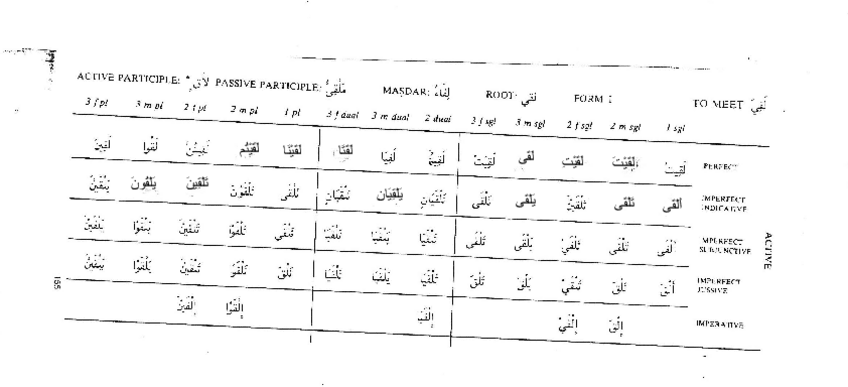 ACTIVE PARTICIPLE: لَاقٍ * PASSIVE PARTICIPLE: مَلْقِيٌّ MAṢDAR: لِقَاءٌ ROOT: لقي FORM I TO MEET لَقِيَ
3 f pl 3 m pl 2 f pl 2 m pl 1 pl 3 f dual 3 m dual 2 dual 3 f sgl 3 m sgl 2 f sgl 2 m sgl 1 sgl
لَقِينَ لَقُوا لَقِيتُنَّ لَقِيتُم لَقِينَا لَقِيَتَا لَقِيَا لَقِيتُمَا لَقِيَتْ لَقِيَ لَقِيتِ لَقِيتَ لَقِيتُ PERFECT
يَلْقَيْنَ يَلْقَوْنَ تَلْقَيْنَ تَلْقَوْنَ نَلْقَى تَلْقَيَانِ يَلْقَيَانِ تَلْقَيَانِ تَلْقَى يَلْقَى تَلْقَيْنَ تَلْقَى أَلْقَى IMPERFECT INDICATIVE
يَلْقَيْنَ يَلْقَوْا تَلْقَيْنَ تَلْقَوْا نَلْقَى تَلْقَيَا يَلْقَيَا تَلْقَيَا تَلْقَى يَلْقَى تَلْقَيْ تَلْقَى أَلْقَى IMPERFECT SUBJUNCTIVE
يَلْقَيْنَ يَلْقَوْا تَلْقَيْنَ تَلْقَوْا نَلْقَ تَلْقَيَا يَلْقَيَا تَلْقَيَا تَلْقَ يَلْقَ تَلْقَيْ تَلْقَ أَلْقَ IMPERFECT JUSSIVE
إِلْقَيْنَ إِلْقَوْا إِلْقَيَا إِلْقَيْ إِلْقَ IMPERATIVE
ACTIVE
165